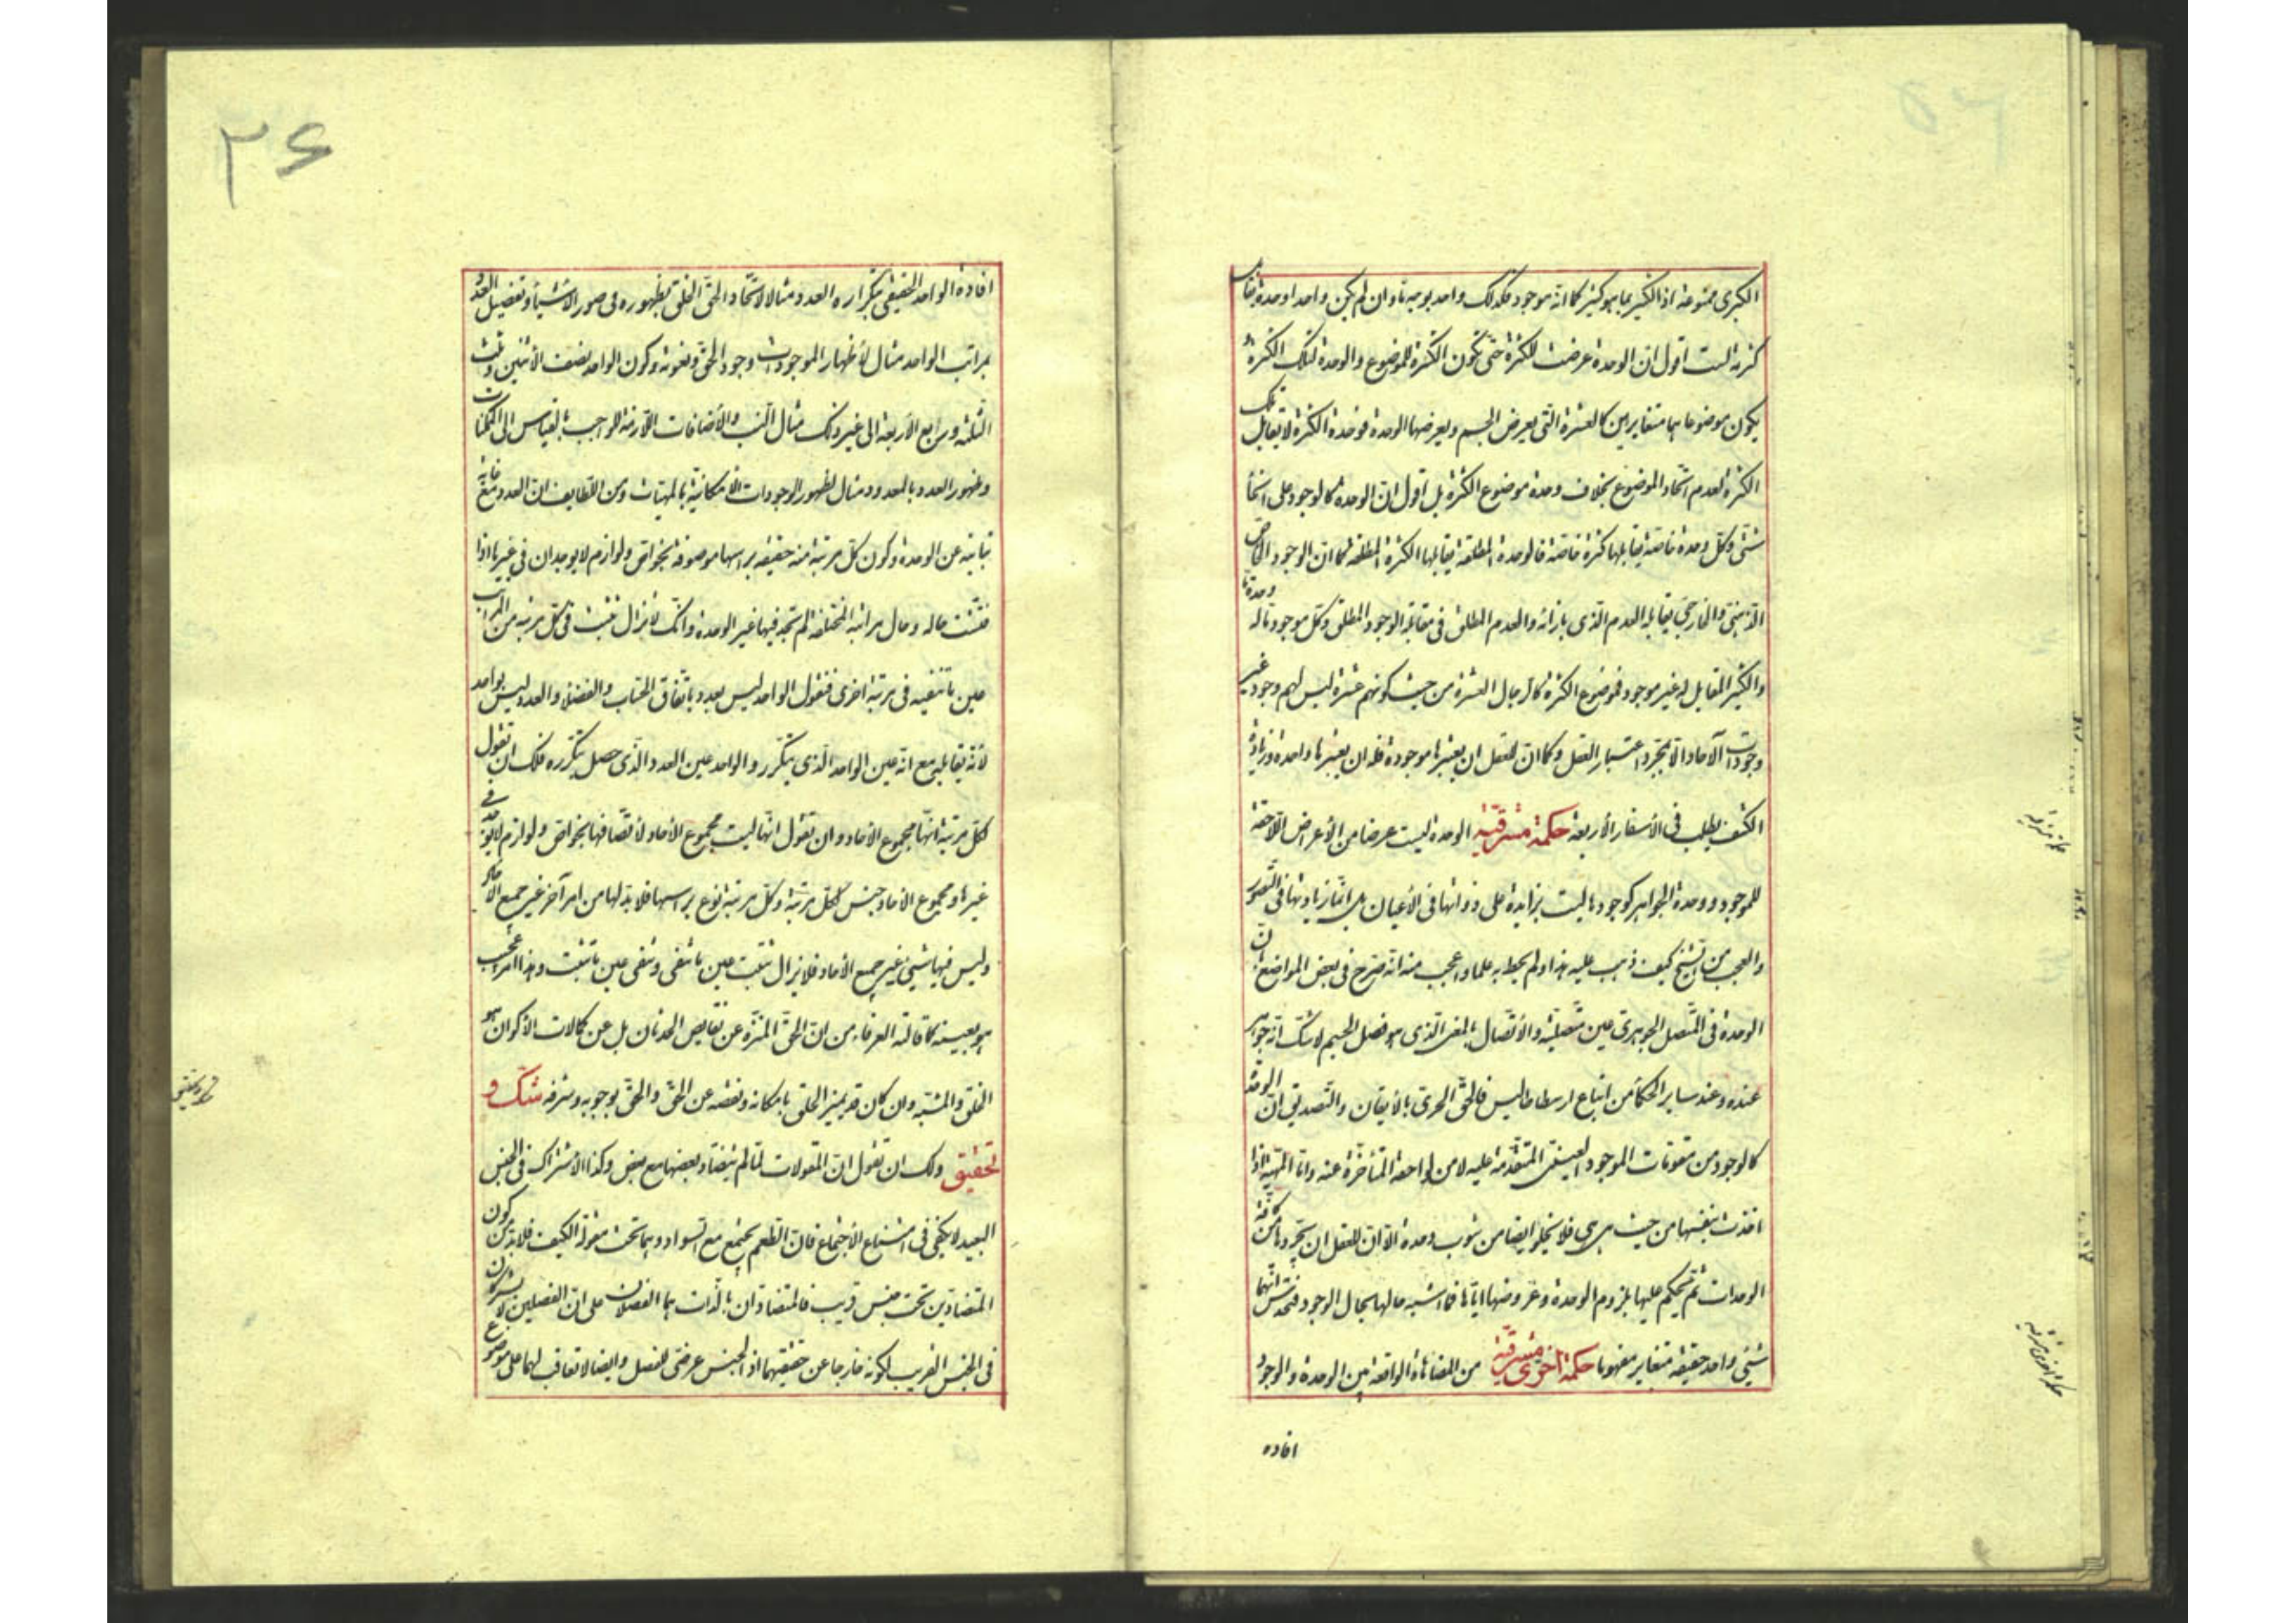 الكبرى ممنوعة اذ الكثير بما هو كثير كما انه موجود فكذلك واحد بوجه ما وان لم يكن واحدا وحدة تقابل
كثرته لست اقول ان الوحدة عرضت للكثرة حتى تكون الكثرة للموضوع والوحدة لتلك الكثرة
يكون موضوعاهما متغايرين كالعشرة التى يعرض الجسم ويعرضها الوحدة فوحدة الكثرة لا يقابل تلك
الكثرة لعدم اتحاد الموضوع بخلاف وحدة موضوع الكثرة بل اقول ان الوحدة كالوجود على انحاء
شتى وكل وحدة خاصة يقابلها كثرة خاصة فالوحدة المطلقة يقابلها الكثرة المطلقة كما ان الوجود الخاص
الذهنى والخارجى يقابله العدم الذى بازائه والعدم المطلق فى مقابلة الوجود المطلق وكل موجود ماله وحدة ما
والكثير المقابل له غير موجود فموضوع الكثرة كالرجال العشرة من حيث كونهم عشرة ليس لهم وجود غير
وجودات الآحاد الا بمجرد اعتبار العقل وكما ان للعقل ان يعتبرها موجودة فله ان يعتبرها واحدة وزيادة
الكشف يطلب فى الأسفار الأربعة حكمة مشرقية الوحدة ليست عرضا من الأعراض اللاحقة
للموجود ووحدة الجواهر كوجودها ليست بزايدة على ذواتها فى الأعيان بل انما زيادتها فى التصور
والعجب من الشيخ كيف ذهب عليه هذا ولم يحط به علما واعجب منه انه صرح فى بعض المواضع بان
الوحدة فى المتصل الجوهرى عين متصليته والأتصال بالمعنى الذى هو فصل الجسم لا شك انه جوهر
عنده وعند ساير الحكماء من اتباع ارسطاطاليس فالحق الحرى بالأيقان والتصديق ان الوحدة
كالوجود من مقومات الموجود العينى المتقدمة عليه لا من لواحقه المتأخرة عنه واما المهية اذا
اخذت بنفسها من حيث هى هى فلا يخلو ايضا من شوب وحدة الا ان للعقل ان يجردها عن كافة
الوحدات ثم يحكم عليها بلزوم الوحدة وعروضها اياها فما اشبه حالها بحال الوجود فتحدس انهما
شيئى واحد حقيقة متغاير مفهوما حكمة اخرى مشرقية من المضاهاة الواقعة بين الوحدة والوجود
افاده
حكمة مشرقية
حكمة اخرى مشرقية
٣٤
افادة الواحد الحقيقى بتكراره العدد مثالا لاتحاد الحق الخلق بظهوره فى صور الأشياء وتفصيل العدد
مراتب الواحد مثال لأظهار الموجودات وجود الحق ونعوته وكون الواحد نصف الأثنين وثلث
الثلثة وربع الأربعة الى غير ذلك مثال النسب والأضافات اللازمة للواجب بالقياس الى الممكنات
وظهور العدد بالمعدود مثال لظهور الوجودات الأمكانية بالمهيات ومن اللطايف ان العدد مع غاية
تباينه عن الوحدة وكون كل مرتبة منه حقيقة براسها موصوفة بخواص ولوازم لا يوجدان فى غيرها اذا
فتشت حاله وحال مراتبه المختلفة لم تجد فيها غير الوحدة وانك لا تزال تثبت فى كل مرتبة من المراتب
عين ما تنفيه فى مرتبة اخرى فنقول الواحد ليس بعدد باتفاق الحساب والفضلاء والعدد ليس بواحد
لأنه يقابله مع انه عين الواحد الذى يتكرر والواحد عين العدد الذى حصل بتكرره فلك ان تقول
لكل مرتبة انها مجموع الأحاد وان تقول انها ليست مجموع الأحاد لأتصافها بخواص ولوازم لا يوجد فى
غيرها ومجموع الأحاد جنس لكل مرتبة وكل مرتبة نوع براسها فلا بد لها من امر آخر غير جميع الأحاد
وليس فيها شيئى غير جميع الأحاد فلا يزال تثبت عين ما تنفى وتنفى عين ما تثبت وهذا امر عجب
هو بعينه ما قالته العرفاء من ان الحق المنزه عن نقايص الحدثان بل عن كمالات الأكوان هو
الخلق والمشبه وان كان قد يميز الخلق بامكانه ونقصه عن الحق والحق بوجوبه وشرفه شك و
تحقيق ولك ان تقول ان المقولات لما لم يتضاد بعضها مع بعض وكذا الأشتراك فى الجنس
البعيد لا يكفى فى امتناع الأجتماع فان الطعم يجتمع مع السواد وهما تحت مقولة الكيف فلا بد من كون
المتضادين تحت جنس قريب فالمتضادان بالذات هما الفصلان على ان الفصلين لا يشتركان
فى الجنس القريب لكونه خارجا عن حقيقتهما اذ الجنس عرضى للفصل وايضا لا تعاقب لهما على موضوع
شك وتحقيق